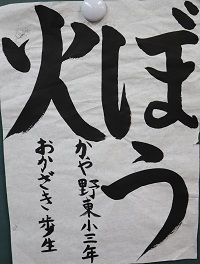 ぼう
火
かや野東小三年
おかざき歩生